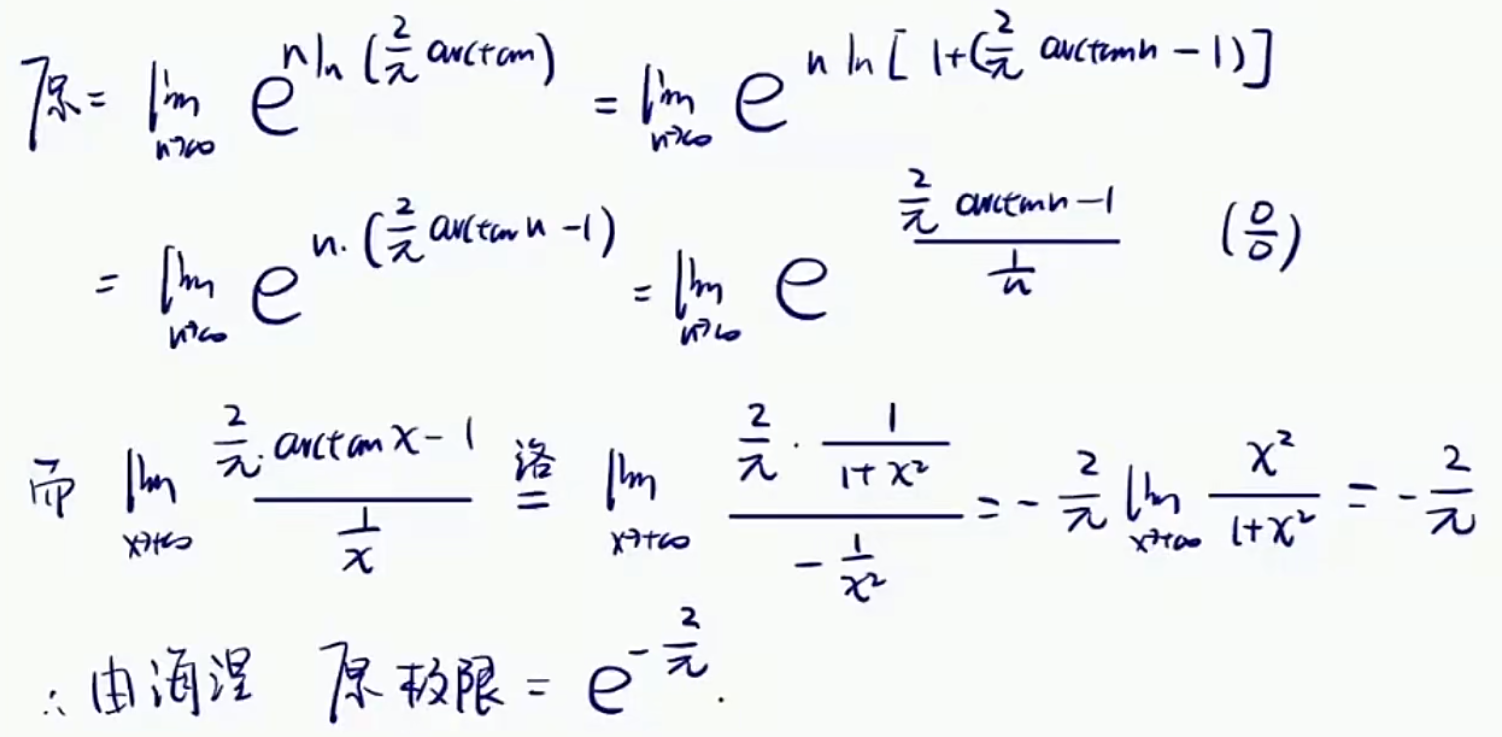 原 = lim_{n→∞} e^{n ln (2/π arctan)} = lim_{n→∞} e^{n ln [1+(2/π arctan n − 1)]}
= lim_{n→∞} e^{n·(2/π arctan n −1)} = lim_{n→∞} e^{(2/π arctan n −1)/(1/n)} (0/0)
而 lim_{x→+∞} (2/π · arctan x − 1)/(1/x) 洛= lim_{x→+∞} (2/π · 1/(1+x²))/(−1/x²) = −2/π lim_{x→+∞} x²/(1+x²) = −2/π
∴ 由海涅 原极限 = e^{−2/π}.